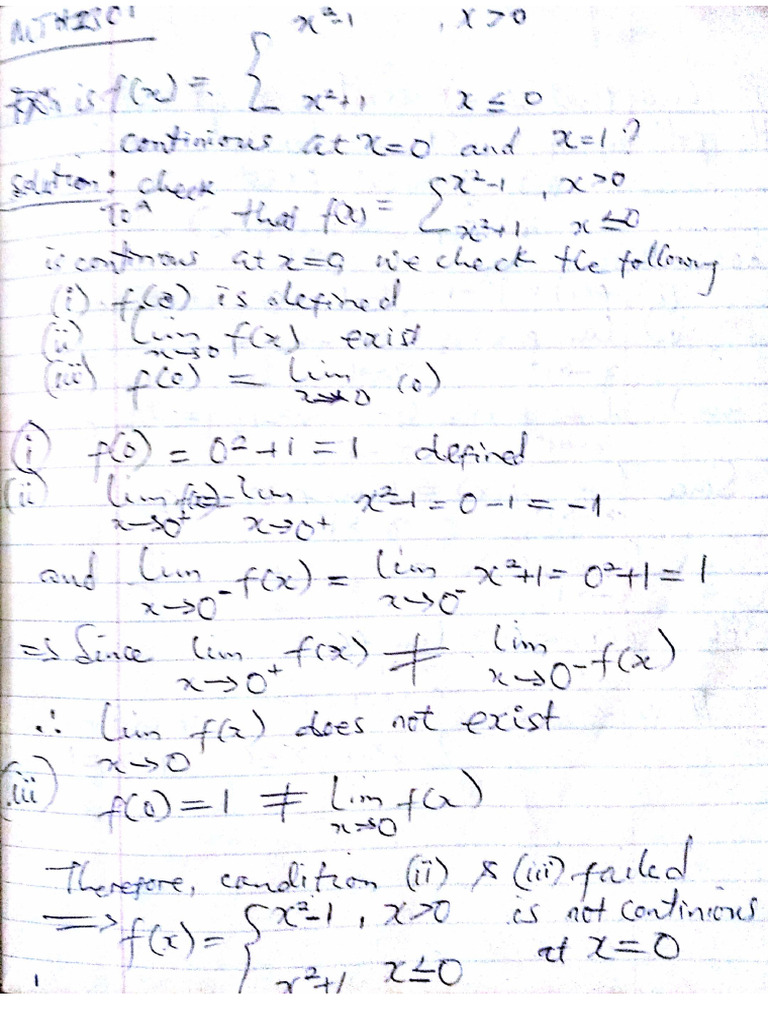 x²-1 , x>0
is f(x) = { x²+1 x ≤ 0
continious at x=0 and x=1?
solution: check
To ^ that f(x) = { x²-1 , x>0
x²+1 x ≤0
is continous at x=0, we check the following
(i) f(0) is defined
(ii) lim x→0 f(x) exist
(iii) f(0) = lim x→0 (0)
(i) f(0) = 0²+1 = 1 defined
(ii) lim x→0⁺ f(x) = lim x→0⁺ x²-1 = 0-1 = -1
and lim x→0⁻ f(x) = lim x→0⁻ x²+1 = 0²+1 = 1
⇒ Since lim x→0⁺ f(x) ≠ lim x→0⁻ f(x)
∴ lim x→0 f(x) does not exist
(iii) f(0) = 1 ≠ lim x→0 f(x)
Therefore, condition (ii) & (iii) failed
⇒ f(x) = { x²-1 , x>0 is not continious
x²+1 x≤0 at x=0